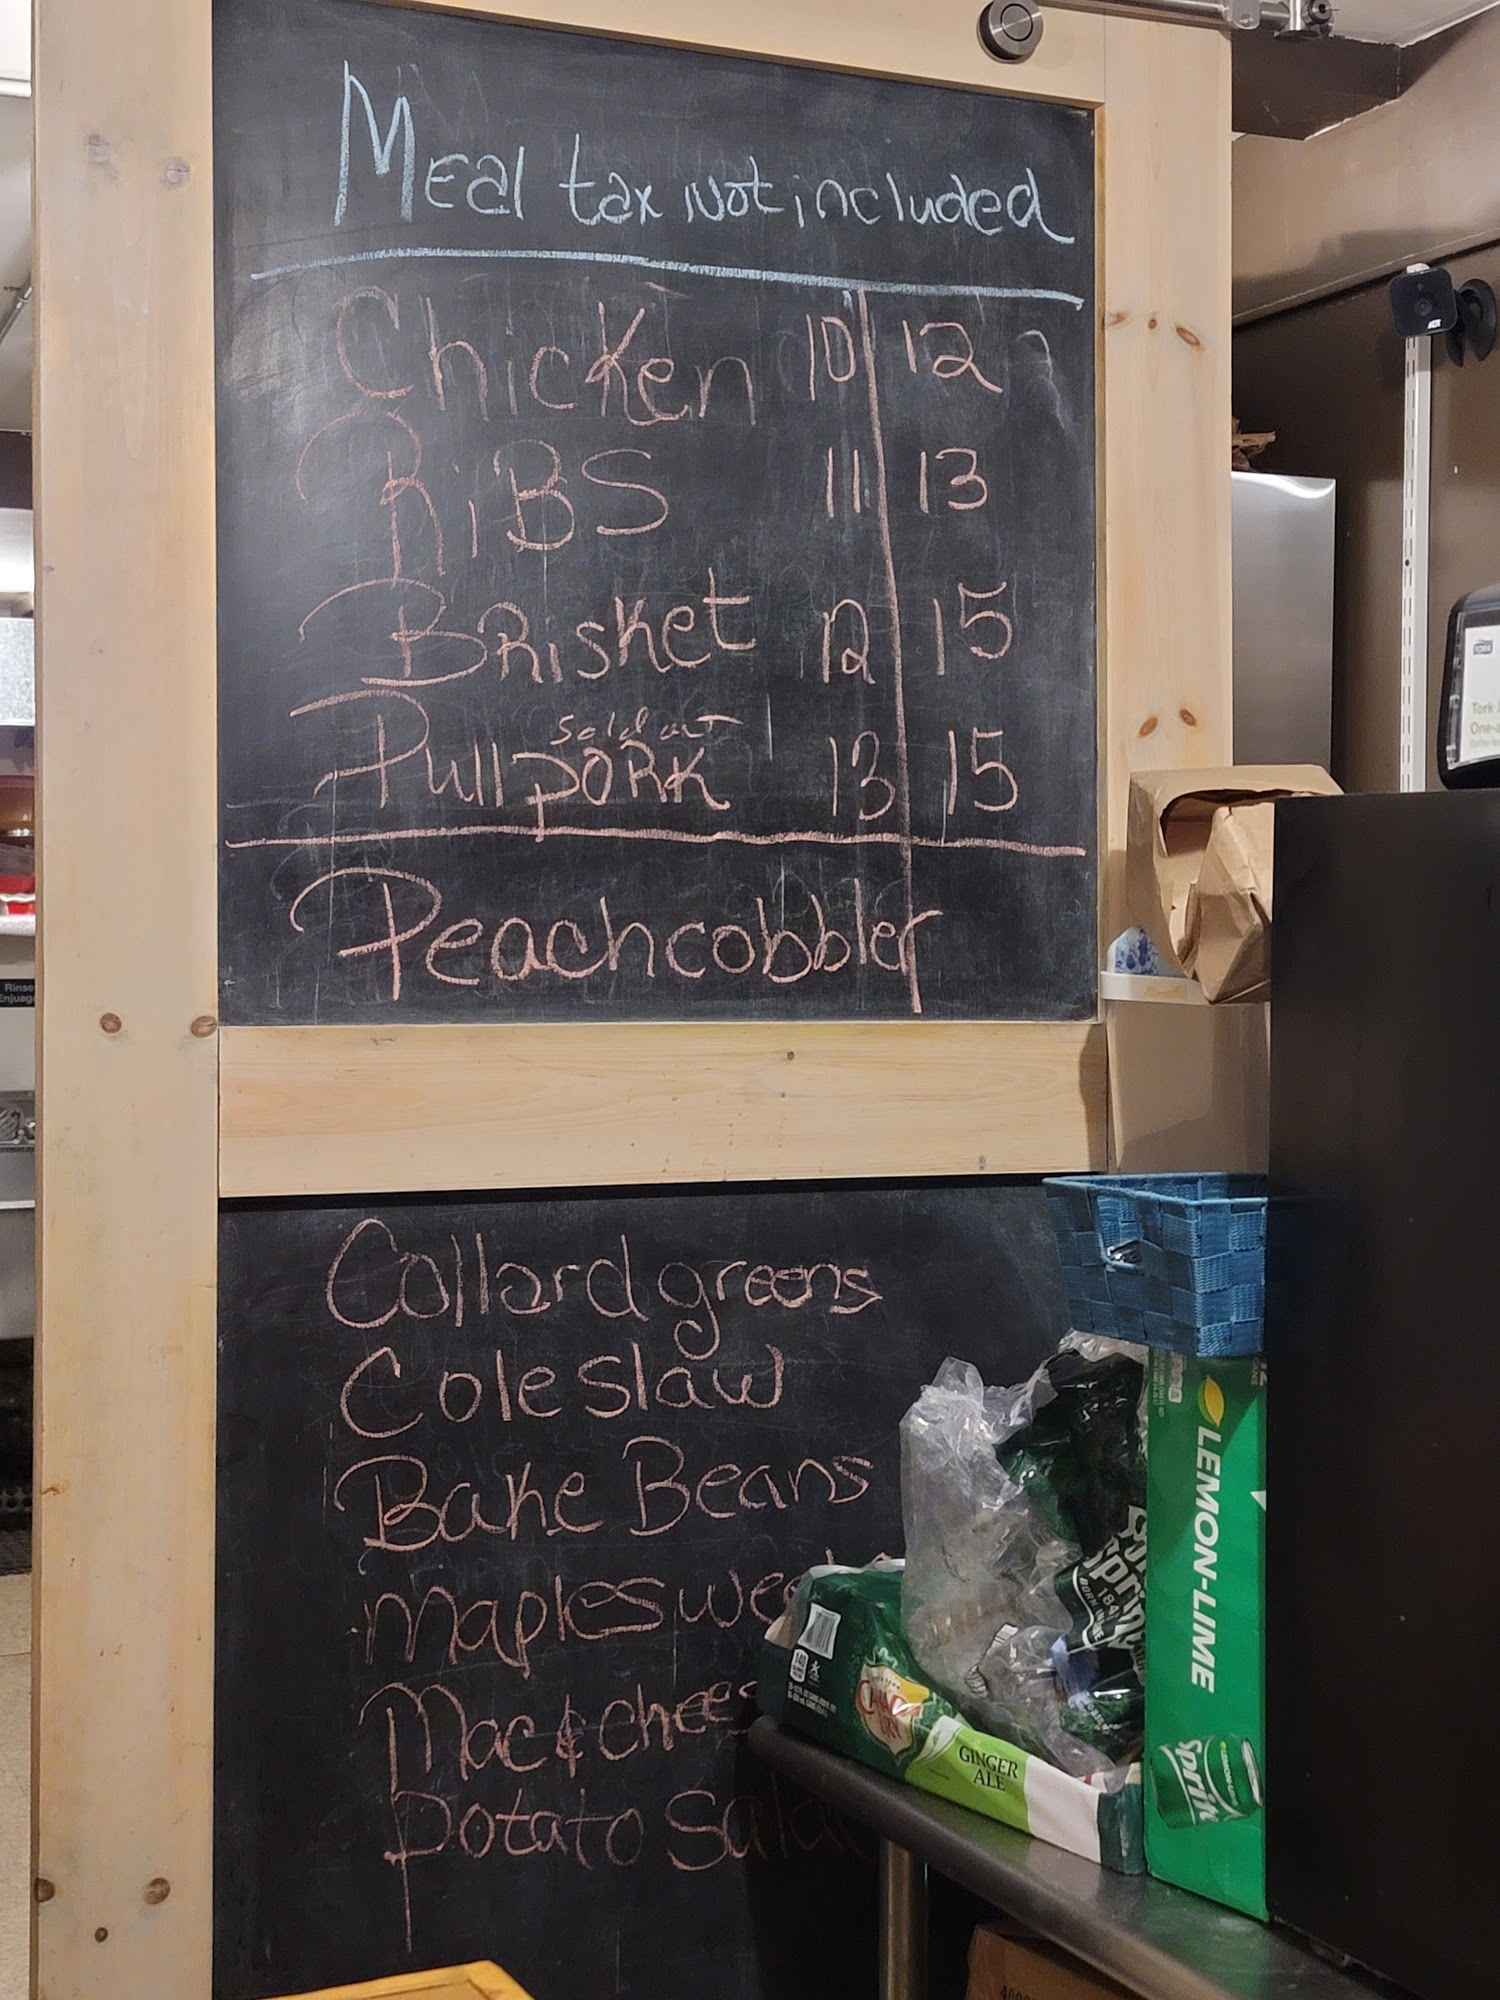 Meal tax Not included
Chicken 10 12
RiBS 11 13
BRisket 12 15
Sold out
Pull pORK 13 15
Peach cobbler
Collard greens
Cole slaw
Bake Beans
Maple swee
Mac & chees
potato Salad
LEMON-LIME
CANADA DRY
GINGER ALE
140
184
Sprite
Tork
One-
Rinse
Enjuag